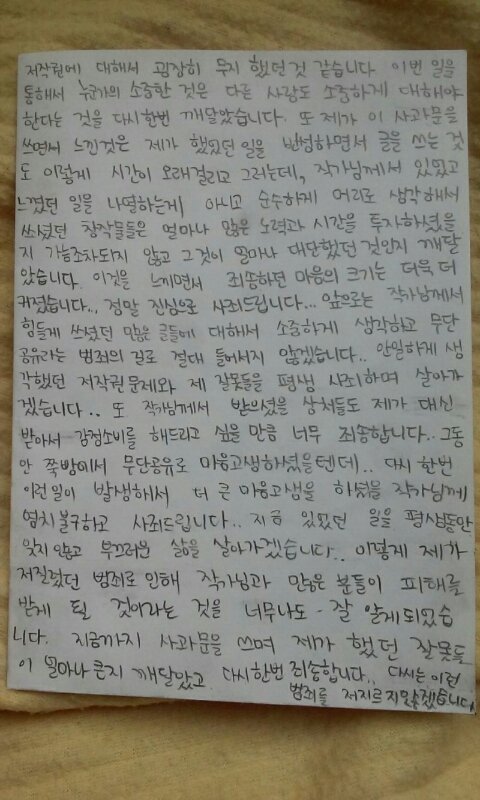 저작권에 대해서 굉장히 무지 했던 것 같습니다 이번 일을
통해서 누군가의 소중한 것은 다른 사람도 소중하게 대해야
한다는 것을 다시한번 깨달았습니다. 또 제가 이 사과문을
쓰면서 느낀것은 제가 했었던 일을 반성하면서 글을 쓰는 것
도 이렇게 시간이 오래걸리고 그러는데, 작가님께서 있었고
느꼈던 일을 나열하는게 아니고 순수하게 머리로 생각해서
쓰셨던 창작물들은 얼마나 많은 노력과 시간을 투자하셨을
지 가늠조차되지 않고 그것이 얼마나 대단했던 것인지 깨달
았습니다. 이것을 느끼면서 죄송하던 마음의 크기는 더욱 더
커졌습니다.. 정말 진심으로 사죄드립니다... 앞으로는 작가님께서
힘들게 쓰셨던 많은 글들에 대해서 소중하게 생각하고 무단
공유라는 범죄의 길로 절대 들어서지 않겠습니다.. 안일하게 생
각했던 저작권문제와 제 잘못들을 평생 사죄하며 살아가
겠습니다.. 또 작가님께서 받으셨을 상처들도 제가 대신
받아서 감정소비를 해드리고 싶을 만큼 너무 죄송합니다.. 그동
안 쭉방에서 무단공유로 마음고생하셨을텐데.. 다시 한번
이런일이 발생해서 더 큰 마음고생을 하셨을 작가님께
염치불구하고 사죄드립니다.. 지금 있었던 일을 평생동안
잊지 않고 부끄러운 삶을 살아가겠습니다.. 이렇게 제가
저질렀던 범죄로 인해 작가님과 많은 분들이 피해를
받게 될 것이라는 것을 너무나도 잘 알게되었습
니다. 지금까지 사과문을 쓰며 제가 했던 잘못들
이 얼마나 큰지 깨달았고 다시한번 죄송합니다.. 다시는 이런
범죄를 저지르지않겠습니다